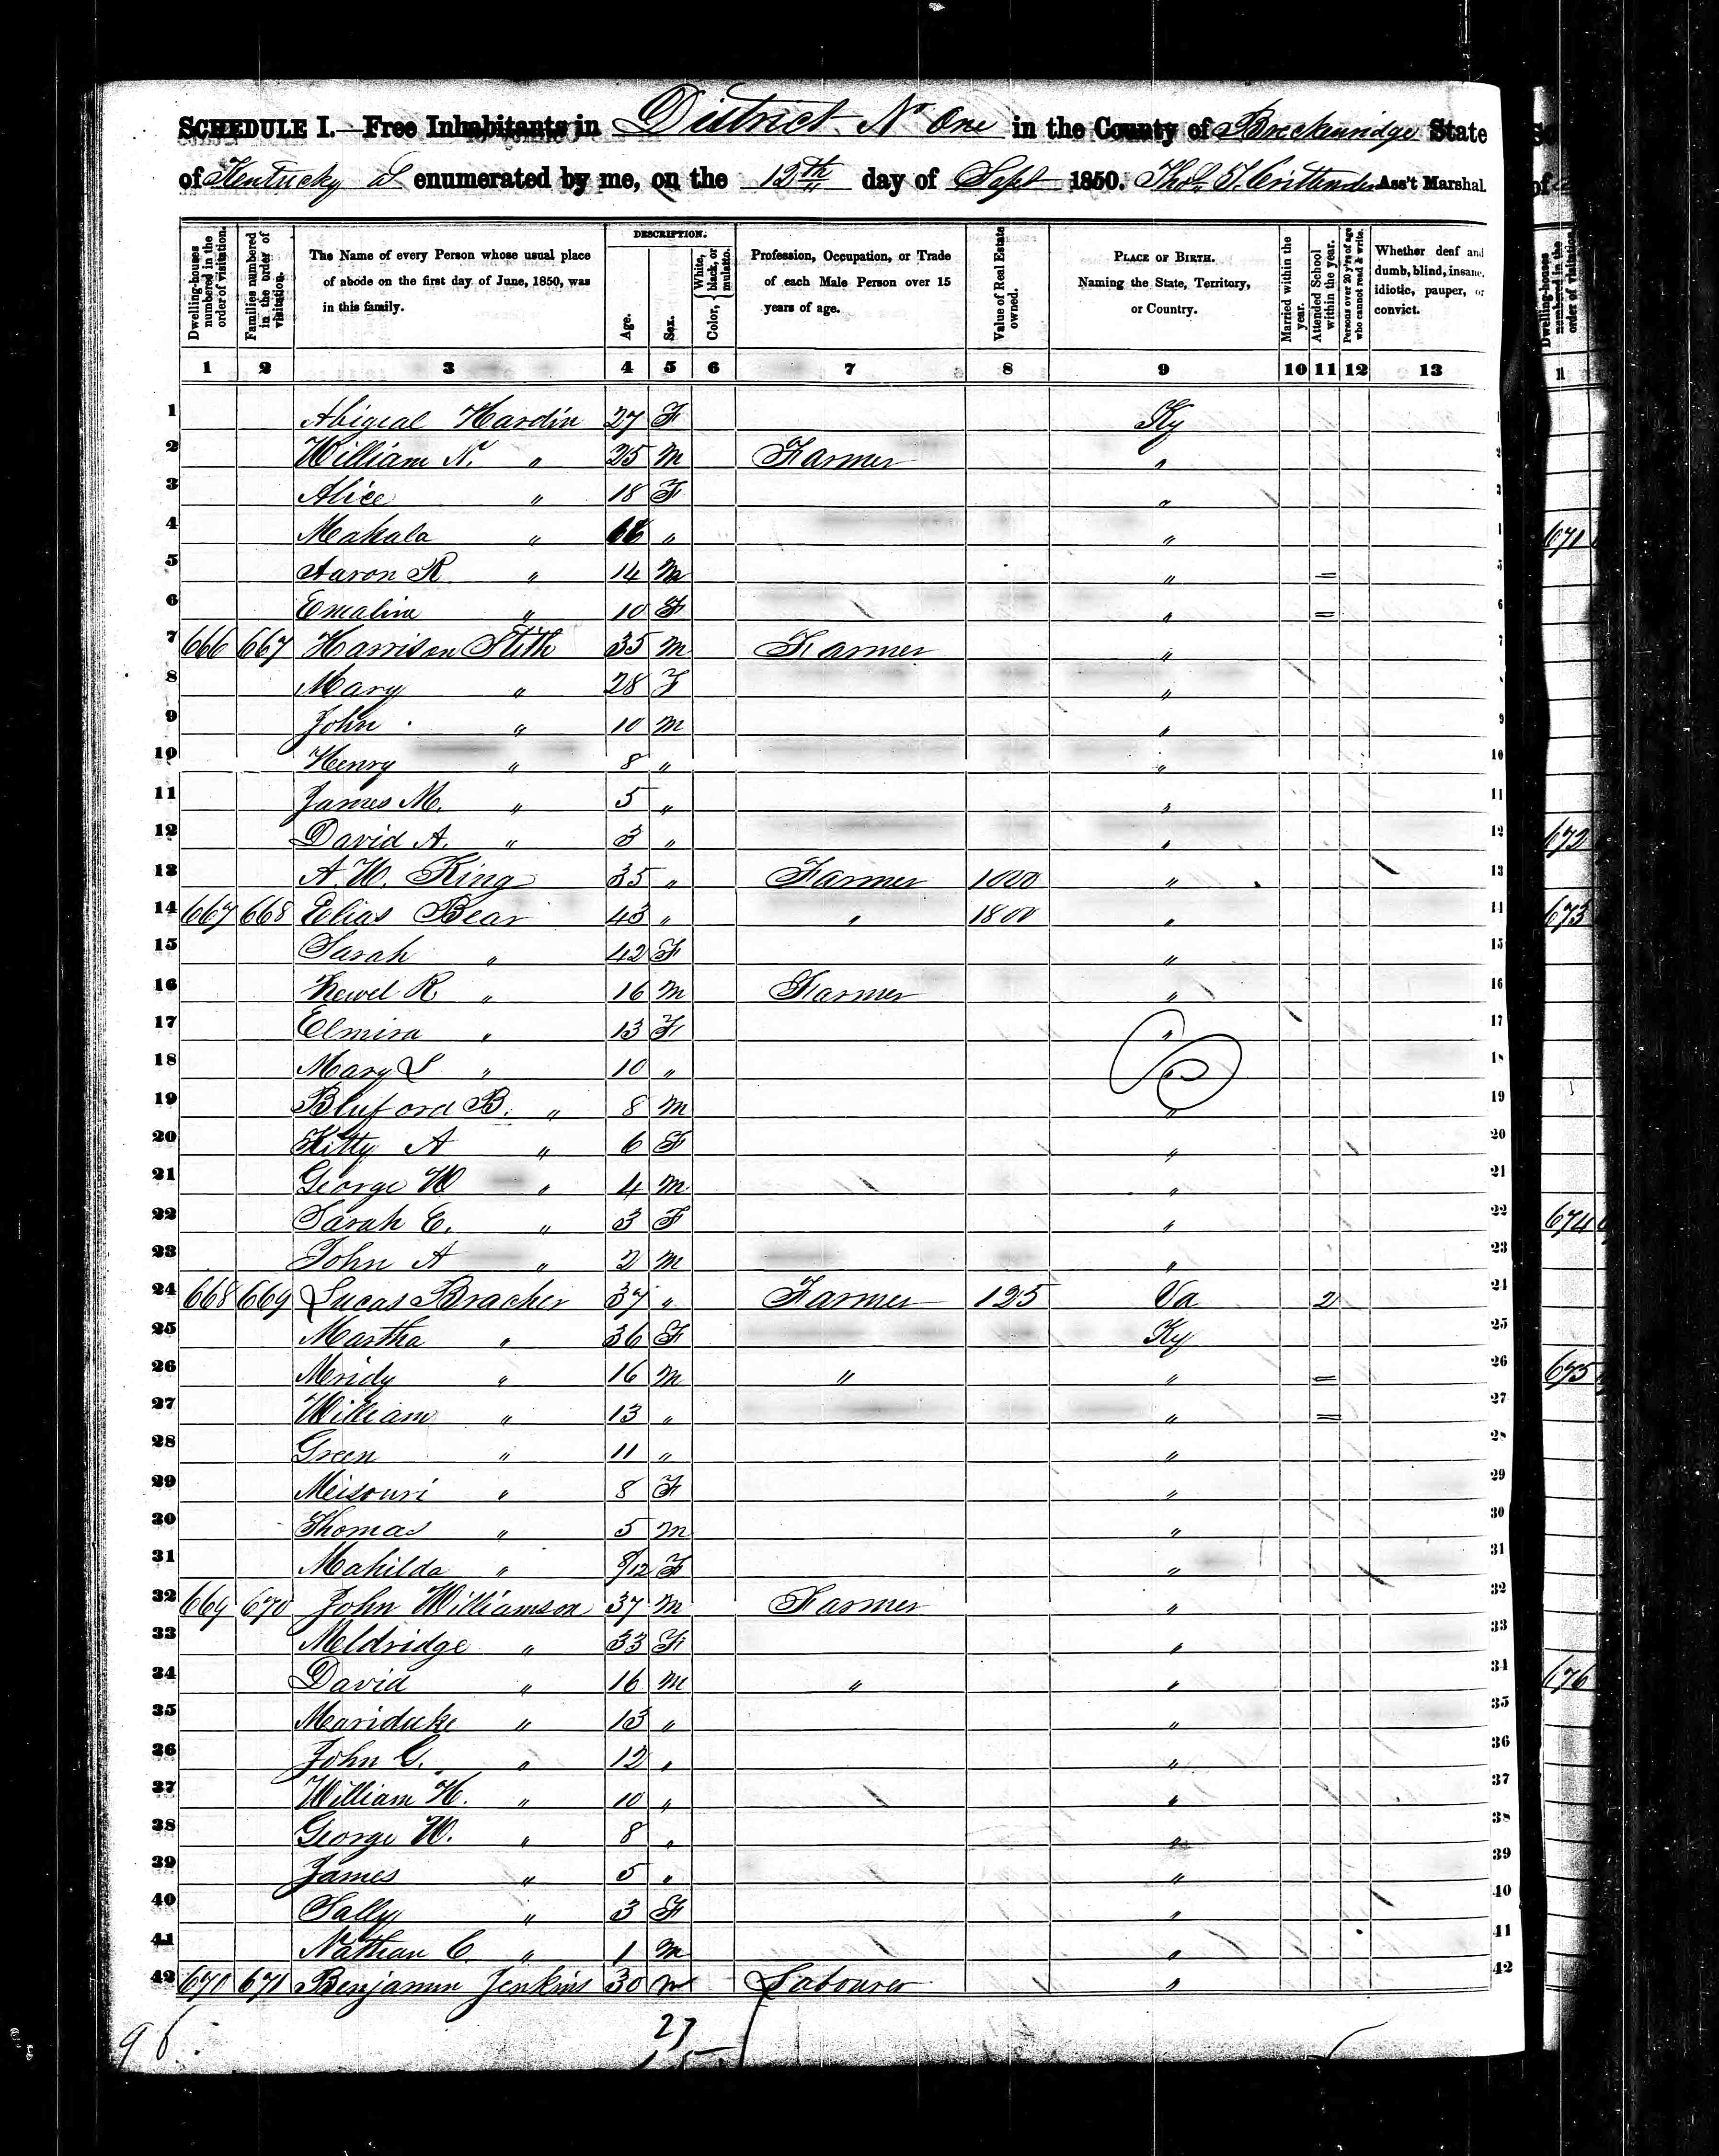 SCHEDULE I.—Free Inhabitants in District No One in the County of Breckenridge State
of Kentucky enumerated by me, on the 12th day of Sept 1850. Thos. T. Crittenden Ass't Marshal.
Dwelling-houses numbered in the order of visitation.
Families numbered in the order of visitation.
The Name of every Person whose usual place of abode on the first day of June, 1850, was in this family.
DESCRIPTION.
Age.
Sex.
Color, White, black, or mulatto.
Profession, Occupation, or Trade of each Male Person over 15 years of age.
Value of Real Estate owned.
PLACE OF BIRTH. Naming the State, Territory, or Country.
Married within the year.
Attended School within the year.
Persons over 20 y'rs of age who cannot read & write.
Whether deaf and dumb, blind, insane, idiotic, pauper, or convict.
1 2 3 4 5 6 7 8 9 10 11 12 13
1 Abigeal Hardin 27 F Ky 1
2 William N. " 25 M Farmer " 2
3 Alice " 18 F " 3
4 Mahala " " "
5 Aaron R " 14 M " = 5
6 Emaline " 10 F " = 6
7 666 667 Harrison Stith 35 M Farmer " 7
8 Mary " 28 F "
9 John " 10 M " 9
10 Henry " 8 " " 10
11 James M. " 5 " " 11
12 David A. " 3 " " 12
13 A W. King 35 " Farmer 1000 " 13
14 667 668 Elias Bear 43 " " 1800 "
15 Sarah " 42 F " 15
16 Hewel R " 16 M Farmer " 16
17 Elmira " 13 F " 17
18 Mary L " 10 " "
19 Bluford B. " 8 M " 19
20 Kitty A " 6 F " 20
21 George W " 4 M " 21
22 Sarah E. " 3 F " 22
23 John A " 2 M " 23
24 668 669 Lucas Bracher 37 " Farmer 125 Va 2
25 Martha " 36 F Ky 25
26 Mridy " 16 M " " = 26
27 William " 13 " " = 27
28 Green " 11 " " 28
29 Meisouri " 8 F " 29
30 Thomas " 5 M " 30
31 Mahilda " 8/12 F " 31
32 669 670 John Williamson 37 M Farmer " 32
33 Meldridge " 33 F " 33
34 David " 16 M " "
35 Mariduke " 13 " " 35
36 John G. " 12 " " 36
37 William H. " 10 " " 37
38 George W. " 8 " " 38
39 James " 5 " " 39
40 Sally " 3 F " 40
41 Nathan C. " 1 M "
42 670 671 Benjamin Jenkins 30 M Labourer " 42
96
27
671
672
673
674
675
676